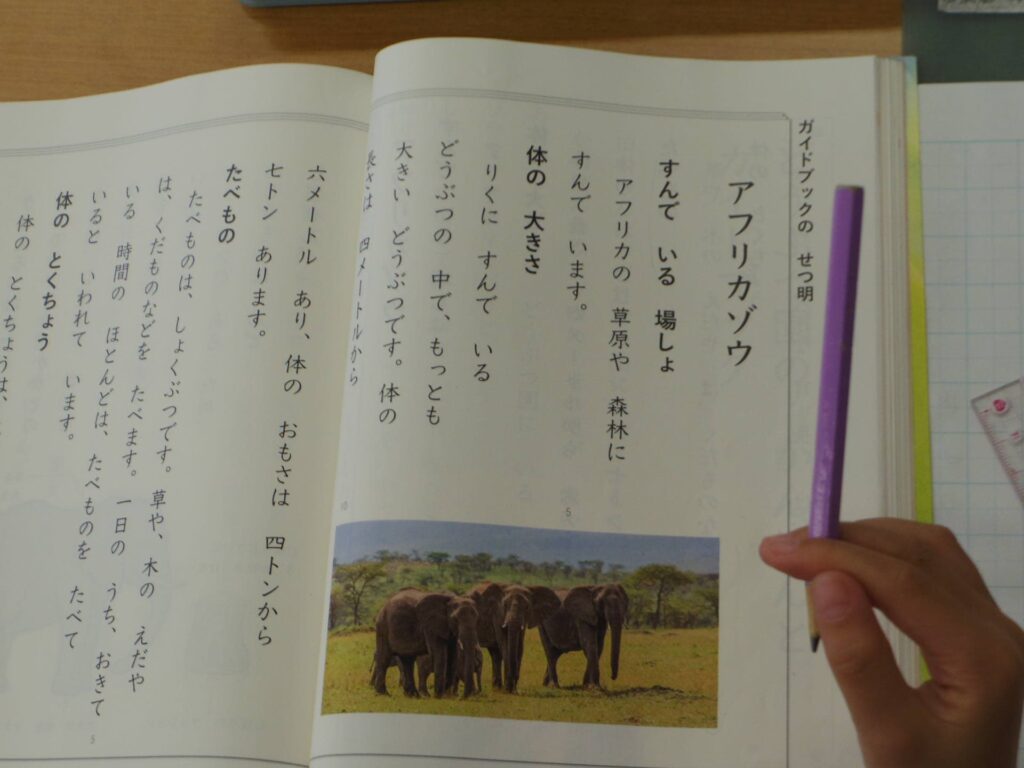 ガイドブックの せつ明
アフリカゾウ
すんで いる 場しょ
アフリカの 草原や 森林に
すんで います。
体の 大きさ
りくに すんで いる
どうぶつの 中で、もっとも
大きい どうぶつです。体の
長さは 四メートルから
六メートル あり、体の おもさは 四トンから
七トン あります。
たべもの
たべものは、しょくぶつです。草や、木の えだや
は、くだものなどを たべます。一日の うち、おきて
いる 時間の ほとんどは、たべものを たべて
いると いわれて います。
体の とくちょう
体の とくちょうは、
5
10
5